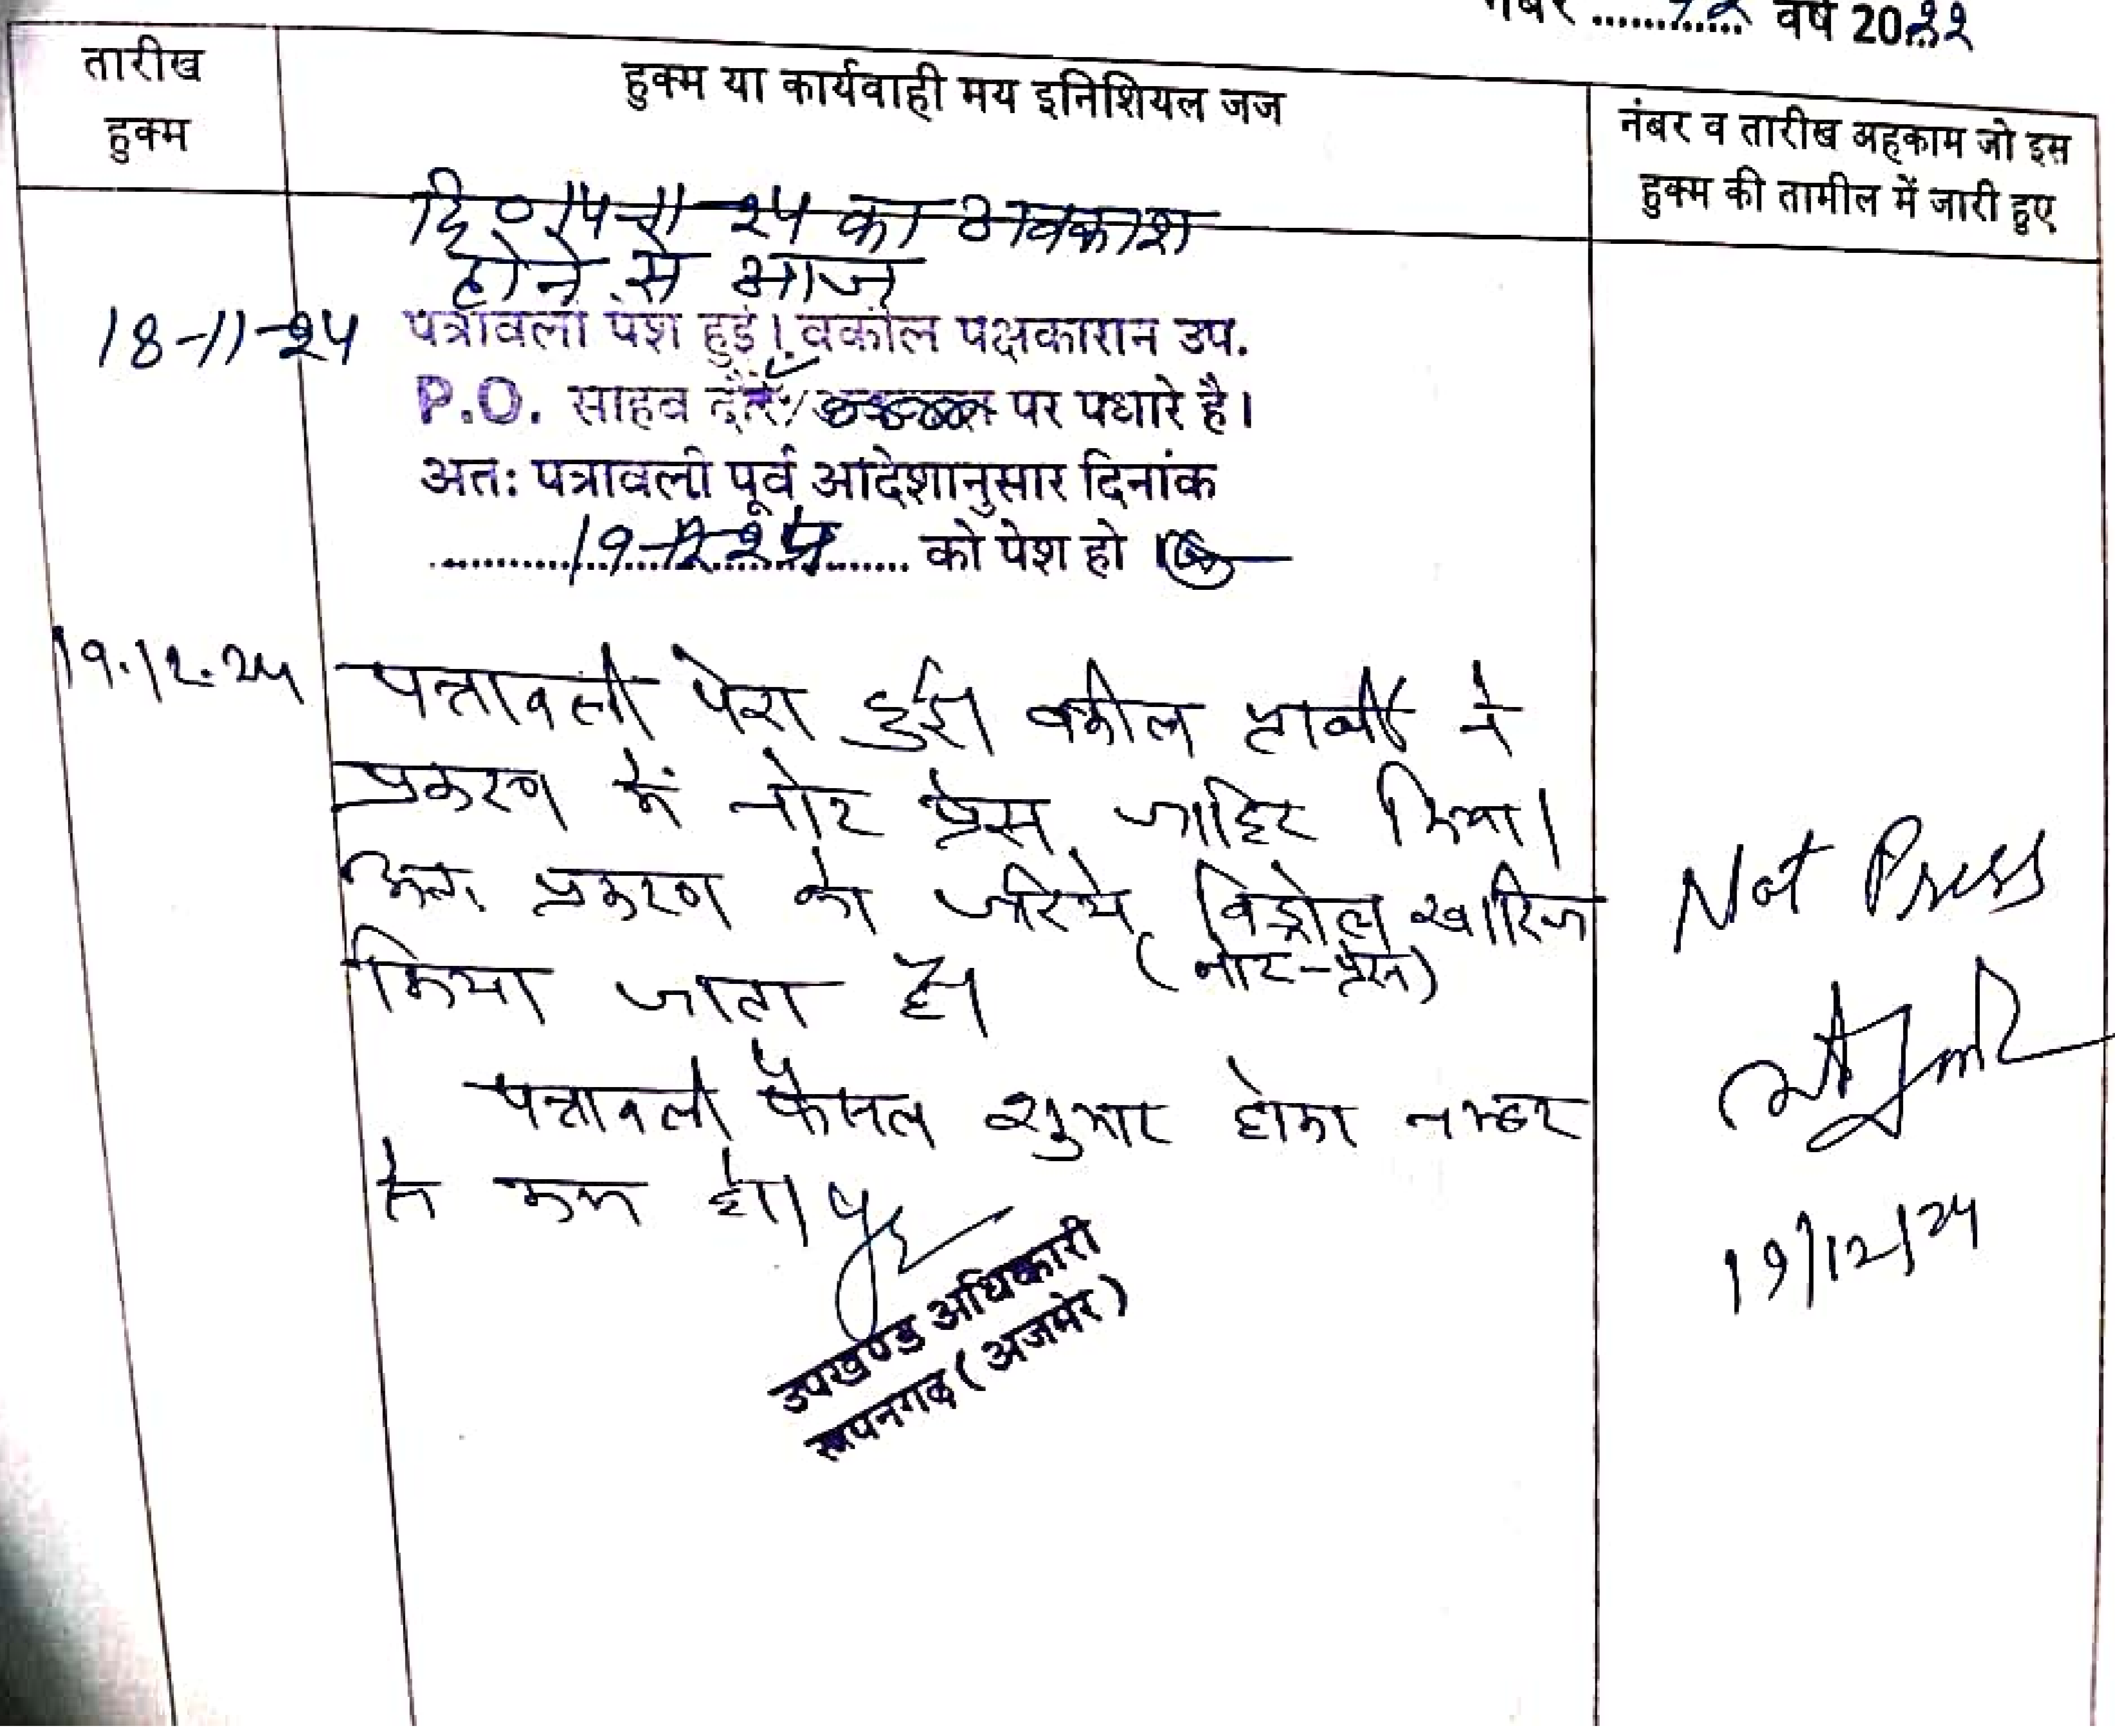 नंबर ............ वर्ष 2022
तारीख
हुक्म
हुक्म या कार्यवाही मय इनिशियल जज
नंबर व तारीख अहकाम जो इस
हुक्म की तामील में जारी हुए
दि० 15-11-24 का अवकाश
होने से आज
18-11-24 पत्रावली पेश हुई। वकील पक्षकारान उप.
P.O. साहब दौरे पर पधारे है।
अतः पत्रावली पूर्व आदेशानुसार दिनांक
19-12-24 को पेश हो
19.12.24 पत्रावली पेश हुई। वकील प्रार्थी ने
प्रकरण में नोट प्रेस जाहिर किया।
अतः प्रकरण को जरिये विड्रोल खारिज
(नोट-प्रेस)
किया जाता है।
पत्रावली फैसल शुमार होकर नम्बर
से कम हो।
उपखण्ड अधिकारी
रूपनगढ़ (अजमेर)
Not Press
19/12/24